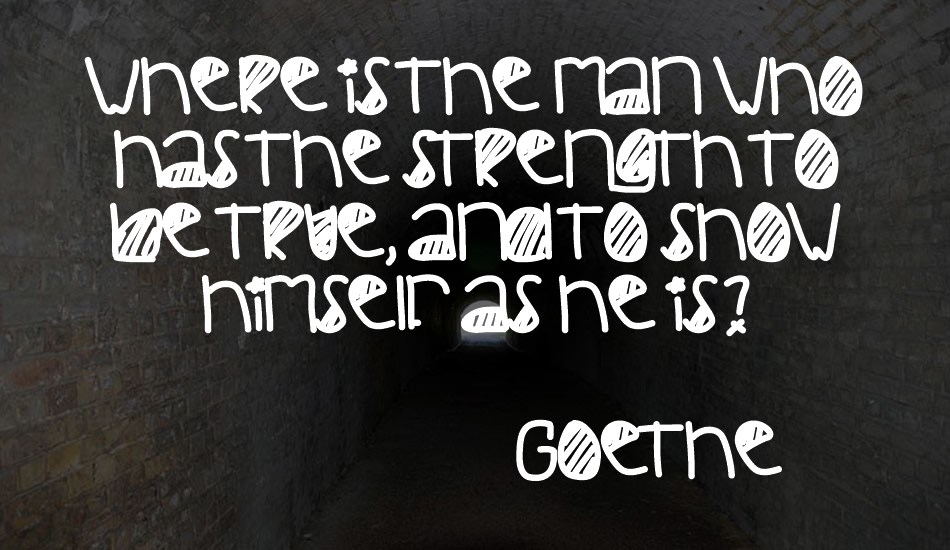 Where is the man who
has the strength to
be true, and to show
himself as he is?
Goethe